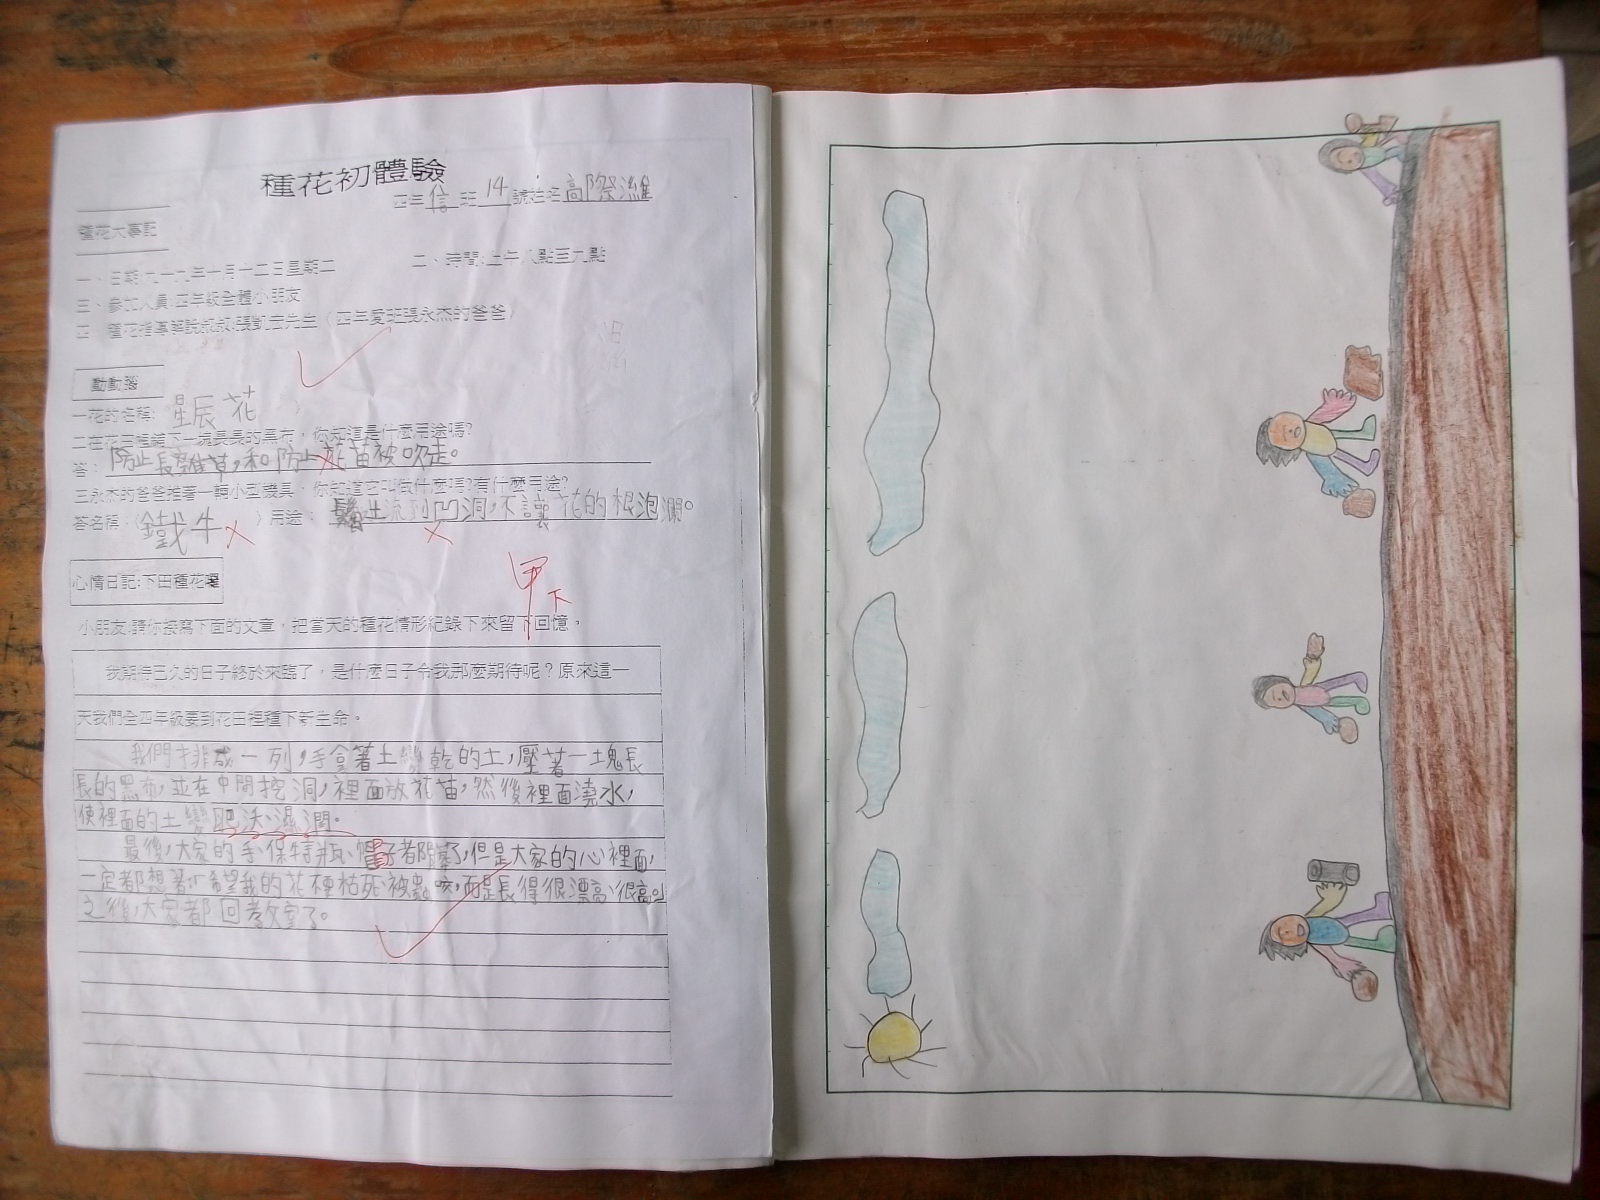 種花初體驗
四年信班14號姓名高際濰
種花大事記
一、日期:九十九年十月十二日星期二 二、時間:上午八點至九點
三、參加人員:四年級全體小朋友
四、種花指導解說叔叔:張凱宏先生（四年愛班張永杰的爸爸）
動動腦
一花的名稱: 星辰花
二在花田裡鋪下一塊長長的黑布，你知道是什麼用途嗎?
答：防止長雜草,和防止花苗被吹走。
三永杰的爸爸推著一輛小型機具，你知道它叫做什麼嗎?有什麼用途?
答名稱：（鐵牛）用途：土流到凹洞,不讓花的根泡爛。
甲下
心情日記:下田種花囉
小朋友:請你接寫下面的文章，把當天的種花情形紀錄下來留下回憶。
我期待已久的日子終於來臨了，是什麼日子令我那麼期待呢？原來這一
天我們全四年級要到花田裡種下新生命。
我們排成一列,手拿著土變乾的土,壓著一塊長
長的黑布,並在中間挖洞,裡面放花苗,然後裡面澆水,
使裡面的土變肥沃、濕潤。
最後,大家的手、保特瓶、帽子都髒了,但是大家的心裡面,
一定都想著「希望我的花不要枯死、被蟲咬,而是長得很漂亮、很高。」
之後,大家都回教室了。